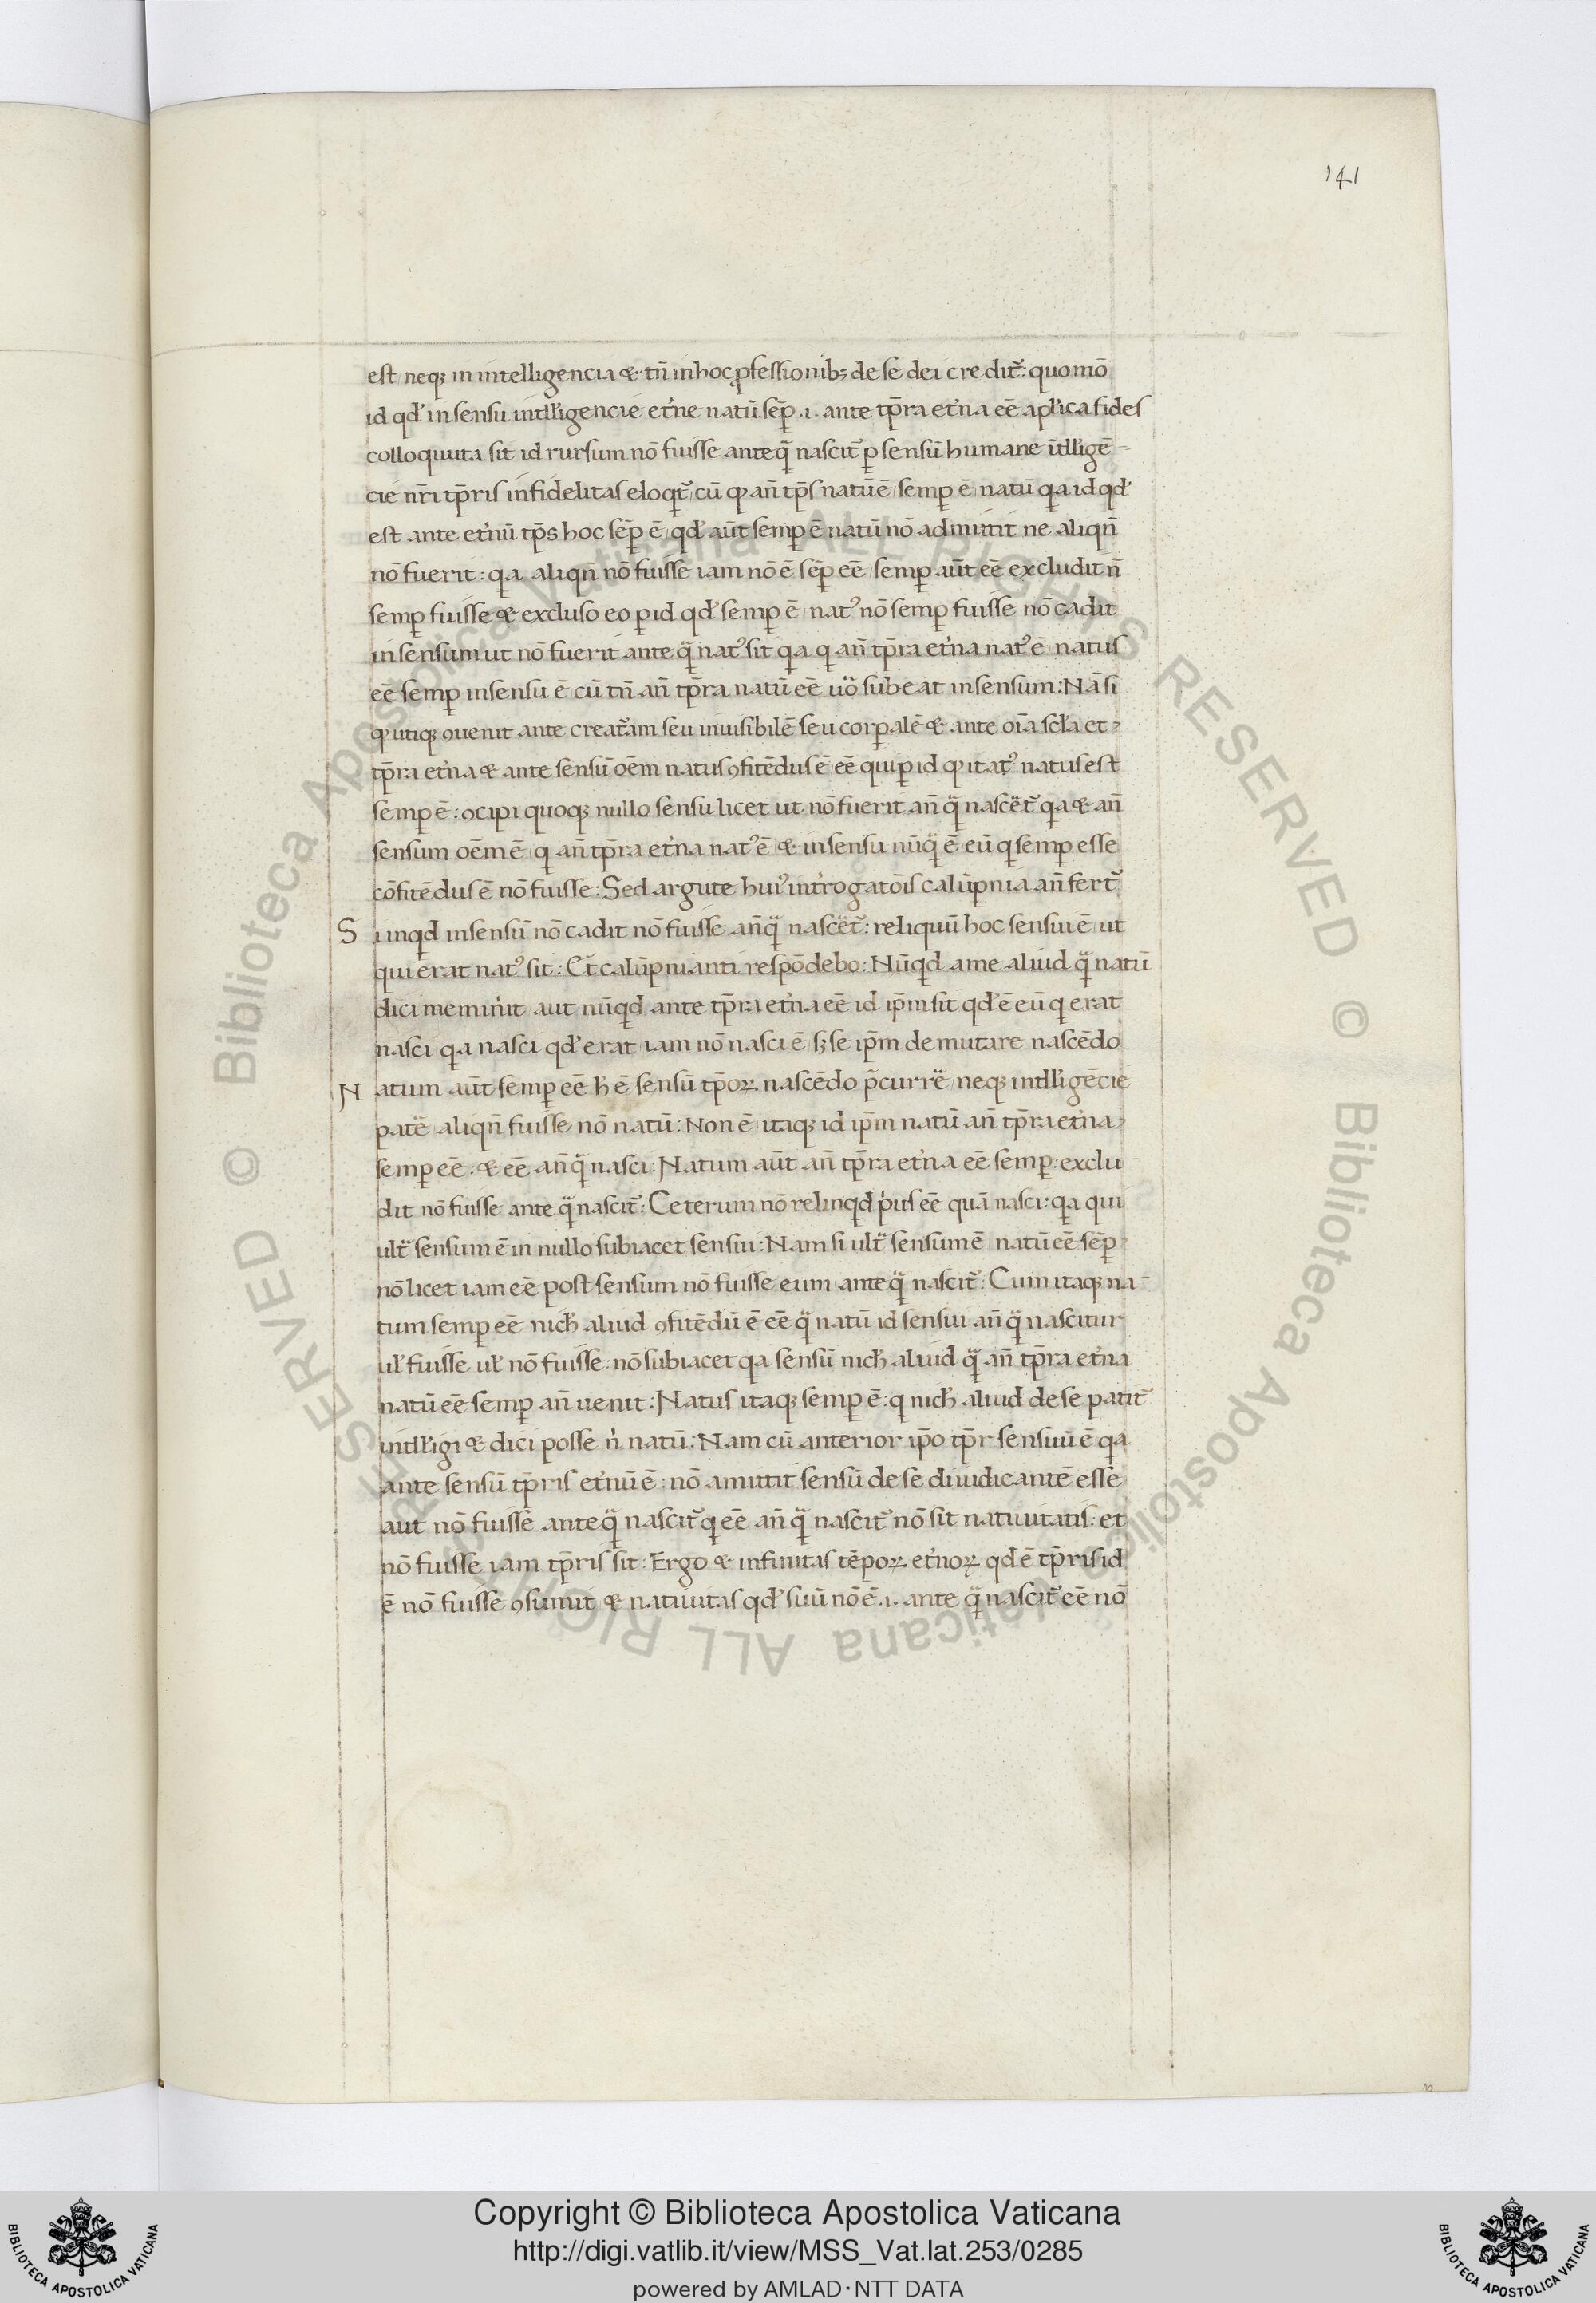 141
est neqꝫ in intelligencia & tn̄ in hoc ꝓfessionibꝫ de se dei credit᷑: quomō
id qd' in sensu intll'igencie et'ne natū sēp .i. ante tp̄ra et'na eē apl'ica fides
colloquuta sit id rursum nō fuisse anteq̄ nascit᷑ ꝑ sensū humane ītll'igē-
cie nr̄i tp̄ris infidelitas eloqt᷑ cū qꝰ an̄ tp̄s natū ē semꝑ ē natū qa id qd'
est ante et'nū tp̄s hoc sēp ē qd' aūt semꝑ ē natū nō admittit ne aliqn̄
nō fuerit: qa aliqn̄ nō fuisse iam nō ē sēp eē semꝑ aūt eē excludit n̄
semꝑ fuisse & excluso eo ꝑ id qd' semꝑ ē natꝰ nō semꝑ fuisse nō cadit
in sensum ut nō fuerit ante q̄ natꝰ sit qa q an̄ tp̄ra et'na natꝰ ē natus
eē semꝑ in sensu ē cū tn̄ an̄ tp̄ra natū eē uō subeat in sensum: Nā si
qꝰ utiqꝫ ꝯuenit ante creat᷑am seu inuisibilē seu corꝑalē & ante oīa scl'a et
tp̄ra et'na & ante sensū oēm natus ꝯfitēdus ē eē qui ꝑ id qꝰ itatꝰ natus est
semꝑ ē: ꝯcipi quoqꝫ nullo sensu licet ut nō fuerit an̄ q̄ nascēt᷑ qa & an̄
sensum oēm ē q an̄ tp̄ra et'na natꝰ ē & in sensu nūq̄ ē eū q semꝑ esse
cōfitēdus ē nō fuisse: Sed argute huiꝰ int'rogatōis calūpnia an̄fert᷑
S i inqd in sensū nō cadit nō fuisse an̄q̄ nascēt᷑: reliquū hoc sensui ē ut
qui erat natꝰ sit: Et calūpnianti respōdebo: Nūqd a me aliud q̄ natū
dici memin'it aut nūqd ante tp̄ra et'na eē id ip̄m sit qd' ē eū q erat
nasci qa nasci qd' erat iam nō nasci ē sꝫ se ip̄m demutare nascēdo
N atum aūt semꝑ eē h' ē sensū tp̄oꝝ nascēdo p̄currē neqꝫ intll'igēcie
patē aliqn̄ fuisse nō natū: Non ē itaqꝫ id ip̄m natū an̄ tp̄ra et'na
semꝑ eē: & eē an̄q̄ nasci: Natum aūt an̄ tp̄ra et'na eē semꝑ: exclu
dit nō fuisse ante q̄ nascit᷑: Ceterum nō relinqd p'us eē quā nasci: qa qui
ult᷑ sensum ē in nullo subiacet sensui: Nam si ult᷑ sensum ē natū eē sēp
nō licet iam eē post sensum nō fuisse eum anteq̄ nascit᷑: Cum itaqꝫ na-
tum semꝑ eē nich' aliud ꝯfitēdū ē eē q̄ natū id sensui an̄ q̄ nascitur
ul' fuisse ul' nō fuisse: nō subiacet qa sensū nich' aliud q̄ an̄ tp̄ra et'na
natū eē semꝑ an̄ uenit: Natus itaqꝫ semꝑ ē: q nich' aliud de se patit᷑
intll'igi & dici posse n' natū: Nam cū anterior ip̄o tp̄r sensuū ē qa
ante sensū tp̄ris et'nū ē: nō amittit sensū de se diiudicantē esse
aut nō fuisse anteq̄ nascit᷑ q eē an̄ q̄ nascit᷑ nō sit natiuitatis: et
nō fuisse iam tp̄ris sit: Ergo & infinitas tēpoꝝ et'noꝝ qd ē tp̄ris id
ē nō fuisse ꝯsumit & natiuitas qd' suū nō ē .i. ante q̄ nascit᷑ eē nō
© Biblioteca Apostolica Vaticana ALL RIGHTS RESERVED
© Biblioteca Apostolica Vaticana ALL RIGHTS RESERVED
BIBLIOTECA APOSTOLICA VATICANA
Copyright © Biblioteca Apostolica Vaticana
http://digi.vatlib.it/view/MSS_Vat.lat.253/0285
powered by AMLAD·NTT DATA
BIBLIOTECA APOSTOLICA VATICANA